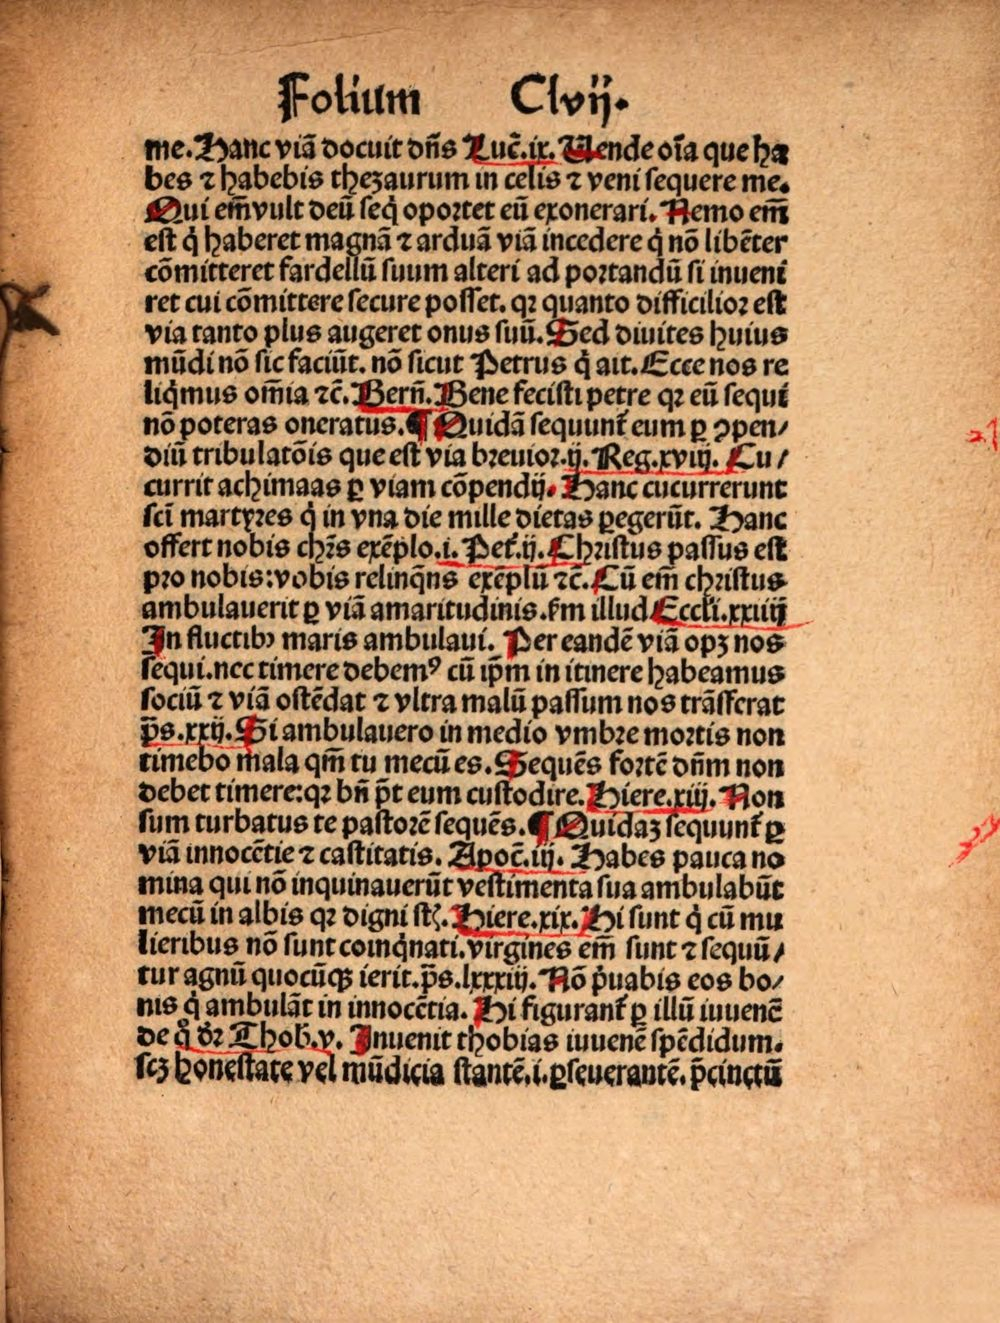 Folium Clvij.
me. Hanc viã docuit dñs Luc̃.ix. Uende oĩa que ha
bes ⁊ habebis thezaurum in celis ⁊ veni sequere me.
Qui em̃ vult deũ seq̇ oportet eũ exonerari. Nemo em̃
est q̇ haberet magnã ⁊ arduã viã incedere q̇ nõ libẽter
cõmitteret fardellũ suum alteri ad portandũ si inueni
ret cui cõmittere secure posset. qꝛ quanto difficilior est
via tanto plus augeret onus suũ. Sed diuites huius
mũdi nõ sic faciũt. nõ sicut Petrus q̇ ait. Ecce nos re
liq̇mus om̃ia ⁊c̃. Berñ. Bene fecisti petre qꝛ eũ sequi
nõ poteras oneratus. ¶ Quidã sequunt᷑ eum ꝑ ꝯpen/
diũ tribulatõis que est via breuior.ij. Reg.xviij. Cu/
currit achimaas ꝑ viam cõpendij. Hanc cucurrerunt
sci̇ martyres q̇ in vna die mille dietas ꝑegerũt. Hanc
offert nobis chr̃s exẽplo.i. Pet᷑.ij. Christus passus est
pro nobis:vobis relinq̇ns exẽplũ ⁊c̃. Cũ em̃ christus
ambulauerit ꝑ viã amaritudinis. ẜm illud Eccli.xxiiij
In fluctibꝰ maris ambulaui. Per eandẽ viã opꝫ nos
sequi. nec timere debemꝰ cũ ip̃m in itinere habeamus
sociũ ⁊ viã ostẽdat ⁊ vltra malũ passum nos trãsferat
p̃s.xxij. Si ambulauero in medio vmbre mortis non
timebo mala qm̃ tu mecũ es. Sequẽs fortẽ dñm non
debet timere:qꝛ bñ p̃t eum custodire. Hiere.xiij. Non
sum turbatus te pastorẽ sequẽs. ¶ Quidaꝫ sequunt᷑ ꝑ
viã innocẽtie ⁊ castitatis. Apoc̃.iij. Habes pauca no
mina qui nõ inquinauerũt vestimenta sua ambulabũt
mecũ in albis qꝛ digni st̃. Hiere.xix. Hi sunt q̇ cũ mu
lieribus nõ sunt coinq̇nati. virgines em̃ sunt ⁊ sequũ/
tur agnũ quocũqꝫ ierit. p̃s.lxxxiij. Nõ ṗuabis eos bo/
nis q̇ ambulãt in innocẽtia. Hi figurant᷑ ꝑ illũ iuuenẽ
de q̊ dꝛ Thob̃.v. Inuenit thobias iuuenẽ splẽdidum.
scꝫ honestate vel mũdicia stantẽ.i. ꝑseuerantẽ. p̃cinctũ